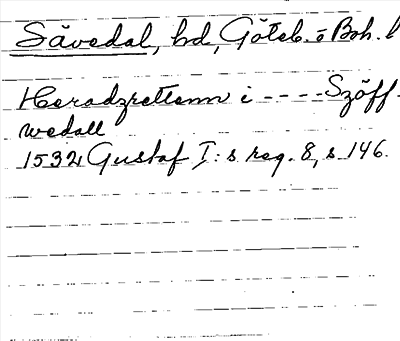 Sävedal, hd, Göteb. o Boh. l
Heradzrettenn i ---- Szöff.
wedall
1532 Gustaf I:s reg. 8, s 146.